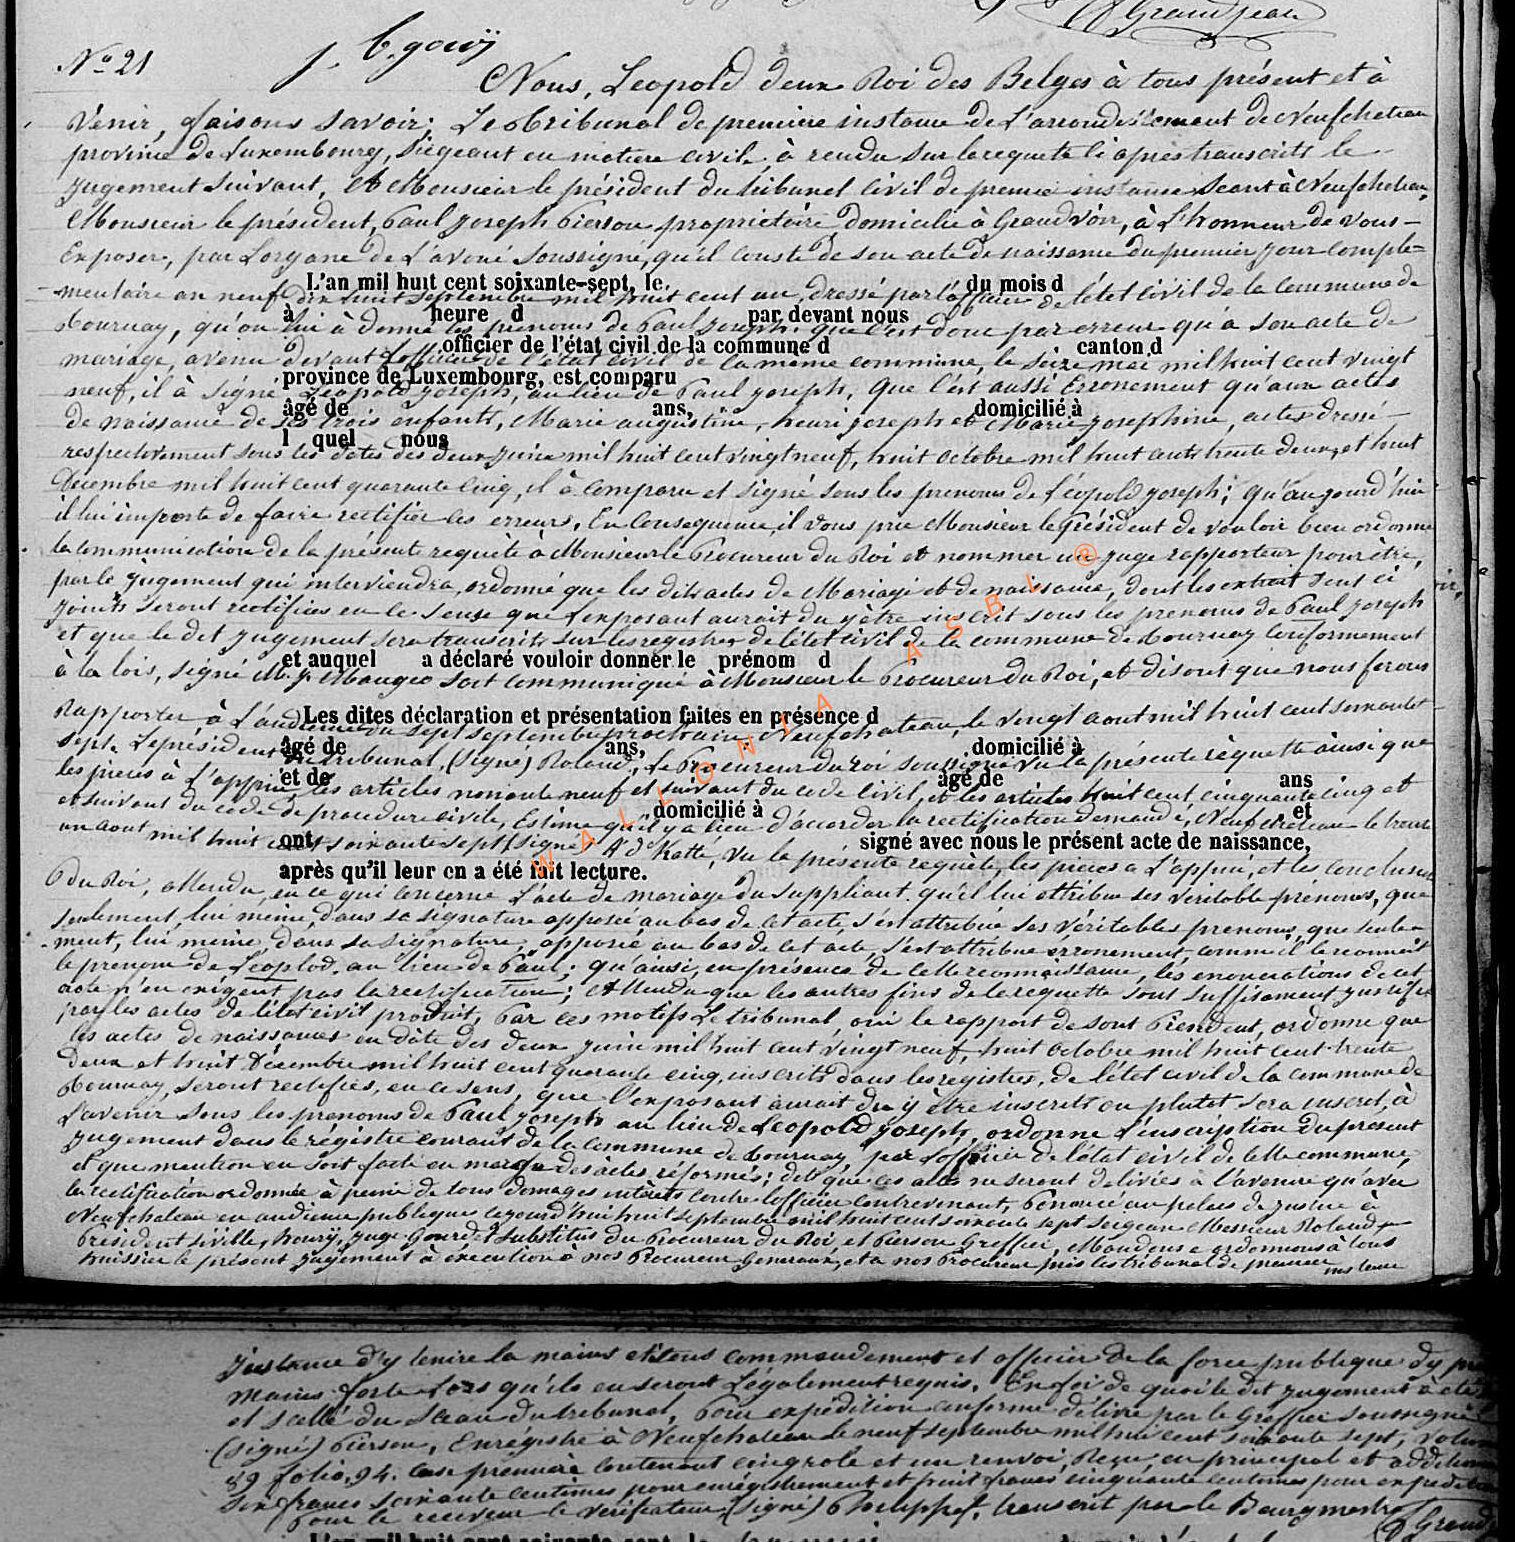 Grandjean
J. B. Gouÿ
No 21
Nous, Leopold deux Roi des Belges à tous présent et à
venir, faisons savoir; Le tribunal de première instance de L'arrondissement de Neufchateau
province de Luxembourg, siégeant en matiere civile, à rendu sur la requete ci après transcrite le
jugement suivant, A Monsieur le président du tribunal Civil de premie instance Seant à Neufchateau,
Monsieur le président, Paul Joseph Pierson propriétaire domicilié à Grandvoir, à L'honneur de vous
Exposer, par Lorgane de L'avoué Soussigné, qu'il conste de son acte de naissance du premier jour complé=
L'an mil huit cent soixante-sept, le du mois d
mentaire an neuf dix huit septembre mil huit cent un, dressé par l'officier de l'état civil de la commune de
à heure d par devant nous
Tournay, qu'on lui à donné les prénoms de Paul Joseph. que c'est donc par erreur qu'a son acte de
officier de l'état civil de la commune d canton d
mariage, avenu devant l'officier de l'état civil de la meme commune, le seize mai mil huit cent vingt
province de Luxembourg, est comparu
neuf, il à signé Léopold Joseph, au lieu de Paul Joseph, que c'est aussi Erronement qu'aux actes
âgé de ans, domicilié à
de naissance de ses trois enfants, Marie augustine, henri joseph et Marie Josephine, actes dressé
l quel nous
respectivement sous les dates des deux juin mil huit cent vingt neuf, huit octobre mil huit cent trente deux, et huit
Décembre mil huit cent quarante cinq, il à comparu et signé sous les prenoms de Léopold joseph; qu'aujourd'hui
il lui importe de faire rectifier ces erreurs. En Consequence, il vous prie Monsieur le Président de vouloir bien ordonner
la communication de la présente requète à Monsieur le Procureur du Roi et nommer un juge rapporteur pour être,
par le jugement qui interviendra, ordonné que les dits actes de Mariage et de naissance, dont les extrait sont ci
joints seront rectifiées en ce sense que L'exposant aurait du y être inscrit sous les prenoms de Paul Joseph
et que le dit jugement sera transcrits sur les registres de l'état civil de la commune de Tournay Conformement
et auquel a déclaré vouloir donner le prénom d
à la lois, signé Mangeo soit communiqué à Monsieur le Procureur du Roi, et disons que nous ferons
Les dites déclaration et présentation faites en présence d
Rapporter, à L'audience du sept septembre prochain. Neufchateau, le vingt aout mil huit cent soixante
âgé de ans, domicilié à
sept. Le président du tribunal, (Signé) Roland, Le Procureur du roi soussigné vu la présente réquette ainsi que
et de âgé de ans
les pieces à l'appui, les articles nonante neuf et suivant du code civil, et les articles huit cent cinquante cinq et
domicilié à , et
et suivant du code de procedure civile, Estime qu'il y a lieu d'accorder la rectification demandé, Neufchateau le trente
ont signé avec nous le présent acte de naissance,
un aout mil huit cent soixante sept (Signé) Ad Katte, Vu la présente requète, les pieces a l'appui, et les conclusions
après qu'il leur en a été fait lecture.
du Roi, attendu, en ce qui concerne L'acte de mariage du Suppliant qu'il lui attribue ses veritable prénoms, que
seulement, lui meme, dans sa signature apposée au bas de cet acte, s'est attribué ses véritables prenoms, que seule=
ment, lui meme, dans sa signature, apposié au bas de cet acte, s'est attribue erronement, comme il le reconnait
le prenom de Léoplod. au lieu de Paul; qu'ainsi, en présence de cette reconnaissance, les enonciations de cet
acte n'en exigent pas la rectification; Attendu que les autres fins de la requette sont suffisament justifié
par les actes de l'état civil produit, Par ces motifs Le tribunal, oui le rapport de sont Président, ordonne que
les actes de naissances en date des deux juin mil huit cent vingt neuf, huit octobre mil huit cent trente
deux et huit Décembre mil huit cent quarante cinq, inscrits dans les registres, de l'état civil de la commune de
Tournay, seront rectifiés, en ce sens, que l'exposant aurait du y être inscrits ou plutot sera inscrit, à
L'avenir sous les prenoms de Paul Joseph au lieu de Leopold Joseph, ordonne L'inscription du présent
jugement dans le régistre courant de la Commune de Tournay par L'officier de l'état civil de cette commune,
et que mention en soit faite en marge des actes réformés; dit que ces actes ne seront delivrés à l'avenir qu'avec
la rectification ordonnée à peine de tous domages intérêts contre l'officier contrevenant, Prononcé au palais de justice à
Neufchateau en audience publique cejourd'hui huit septembre mil huit cent soixante sept Messieur Roland
President Siville, houry, juge Gourdet Substitus du Procureur du Roi, et Pierson Greffier, Mandons e ordonnons à tous
huissier le présent jugement à éxecution à nos Procureur Generaux, et a nos Procureur près les tribunal de premier
instance
Justance d'y tenire la mains et à tous commendement et officier de la force publique d'y
mains forte Lors qu'ils en seront Légalement requis. En foi de quoi le dit jugement à été
et scellé du sceau du tribunal, Pour expédition conforme délivré par le Greffier soussigné
(signé) Pierson, Enrégistré à Neufchateau le neuf septembre mil huit cent soixante sept, volum
89 folio. 94. case première contenant cinq role et un renvoi, Reçu, en principal et additionn
Six francs soixante centimes pour enrégistrement et huit francs cinquante centimes pour expedition
Pour le receveur le vérificateur, (signé) transcrit par le Bourgmestre
Grandj
L'an mil huit cent soixante-sept, le
WALLONIA ASBL ®